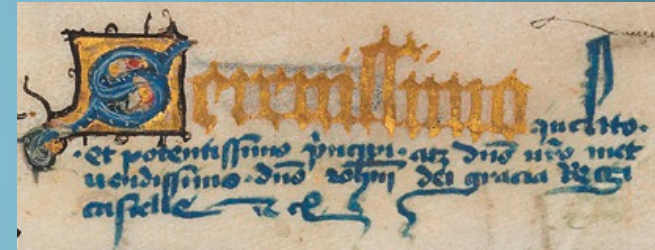 Serenissimo
·inclito·
·et potentissimo p̃ncipi· atq̨ dño nr̃o met
uendissimo· dño Joh̃ni dei gracia Regi
castelle &c̃